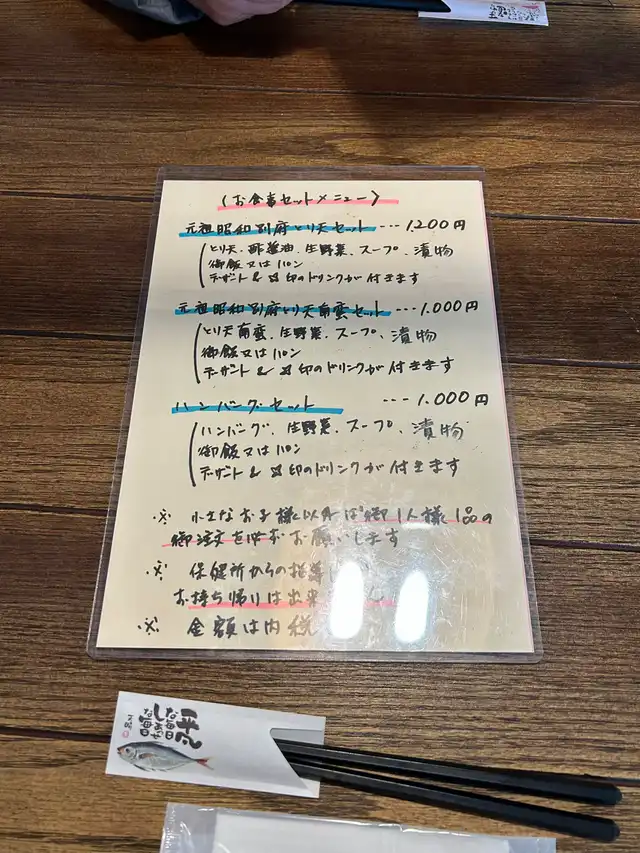 〈お食事セットメニュー〉
元祖昭和別府とり天セット ---1200円
とり天、酢醤油、生野菜、スープ、漬物
御飯又はパン
デザート & 印のドリンクが付きます
元祖昭和別府とり天南蛮セット ---1.000円
とり天南蛮、生野菜、スープ、漬物
御飯又はパン
デザート & 印のドリンクが付きます
ハンバーグ・セット ---1.000円
ハンバーグ、生野菜、スープ、漬物
御飯又はパン
デザート & 印のドリンクが付きます
※ 小さなお子様以外は御1人様1品の
御注文をお願いします
※ 保健所からの指導
お持ち帰りは出来
※ 金額は内税
平凡
な毎日
しあわせ
な毎日